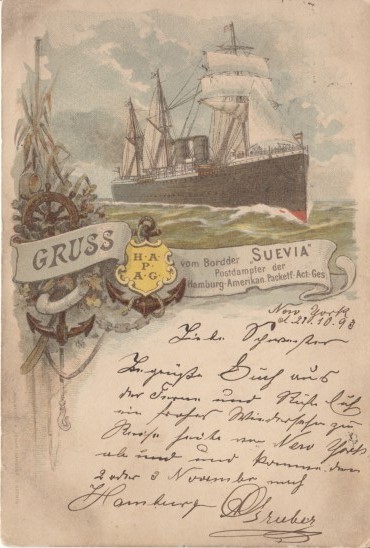 GRUSS
H·A·
P·
A·G·
vom Bord der "SUEVIA"
Postdampfer der
Hamburg-Amerikan. Packetf. Act-Ges.
New York
d. 10.90
Liebe Schwester
Begrüße Euch aus
der Ferne und Rufe Euch
ein frohes Wiedersehn zu
Reise heute von New York
ab und komme den
2 oder 3 November nach
Hamburg
Gruber